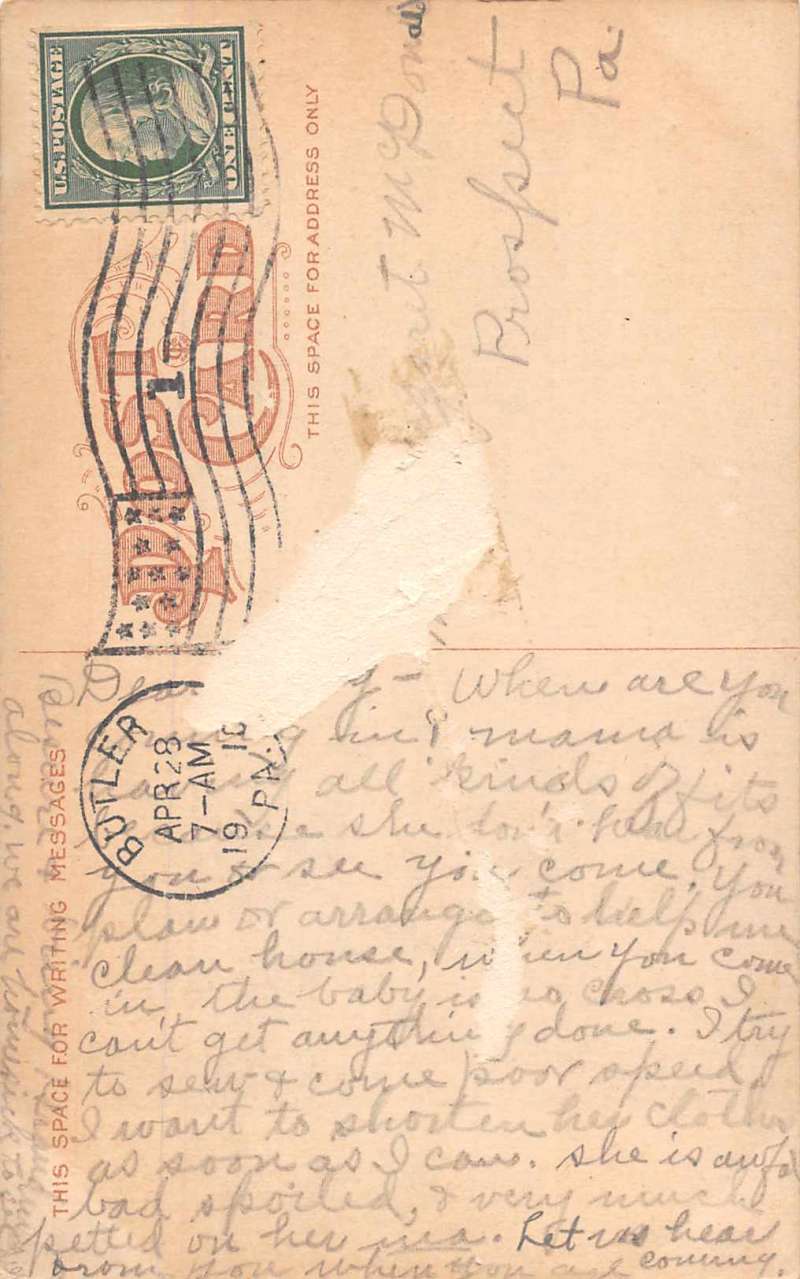 U.S. POSTAGE
ONE CENT
POST CARD
1
THIS SPACE FOR ADDRESS ONLY
McDonald
Prospect
Pa.
BUTLER
APR 28
7-AM
1910
PA.
THIS SPACE FOR WRITING MESSAGES
Dear - When are you
in? mama is
all kinds of fits
she don't hear from
you or see you come. You
plan or arrange to help me
clean house, when you come
in, the baby is so cross I
can't get anything done. I try
to sew & come poor speed,
I want to shorten her clothes
as soon as I can. she is awful
bad spoiled, & very much
petted on her ma. Let us hear
from you when you are coming.
along, we are